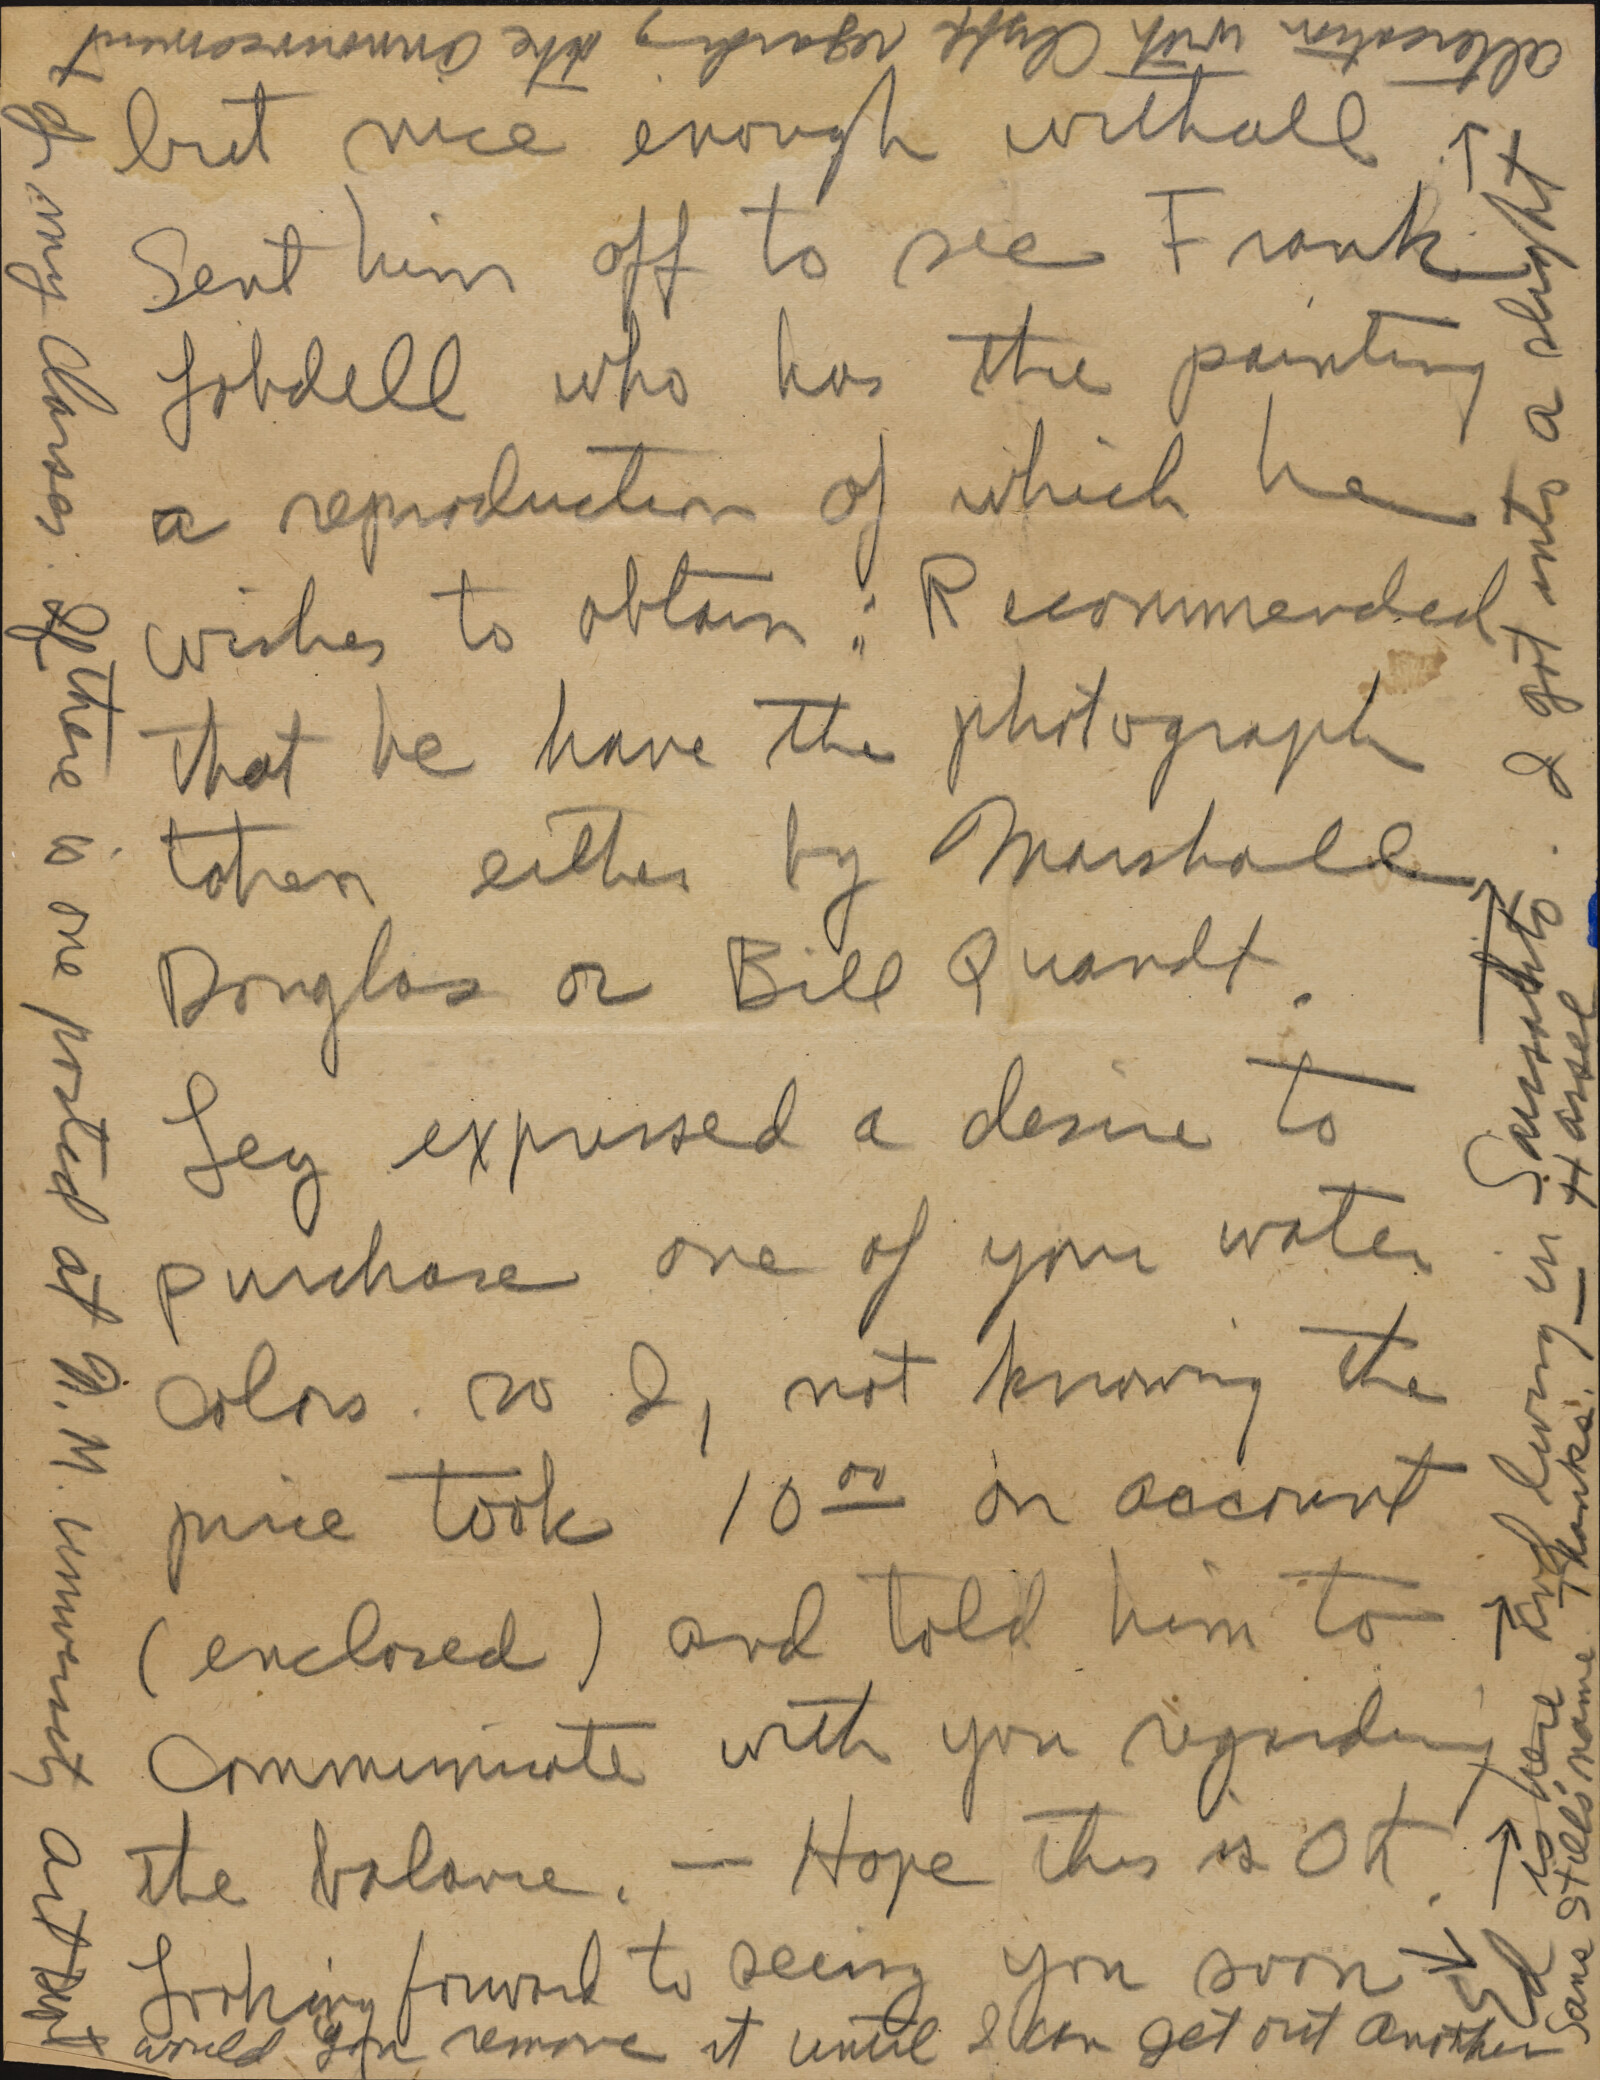 but nice enough withall
Sent him off to see Frank
Lobdell who has the painting
a reproduction of which he
wishes to obtain; Recommended
that he have the photograph
taken either by Marshall
Douglas or Bill Quandt.
Ley expressed a desire to
purchase one of your water
colors. so I, not knowing the
price took 10 00 on account
(enclosed) and told him to
communicate with you regarding
the balance. — Hope this is OK.
Looking forward to seeing you soon
Ed is here and living in Sausalito. I got into a slight
altercation with Clyfe regarding the announcement
of my classes. If there is one posted at N.M. University art dept
would you remove it until I can get out another
sans Still's name. Thanks. — Hassel